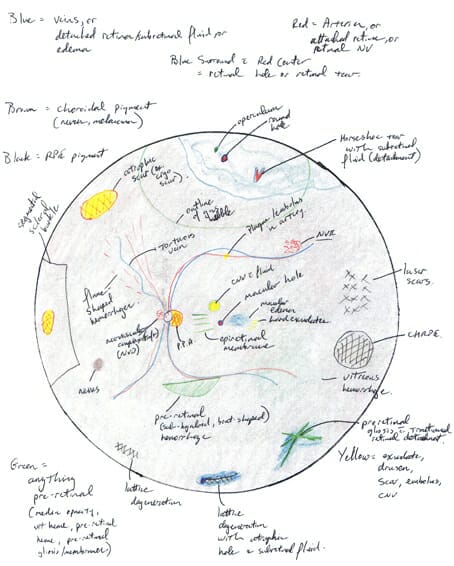 Blue = veins, or
detached retina/subretinal fluid or
edema
Red = Arteries, or
attached retina, or
retinal NV
Blue Surround c̄ Red Center
= retinal hole or retinal tear.
Brown = choroidal pigment
(nevus, melanoma)
Black = RPE pigment
operculum
round
hole
Horseshoe tear
with subretinal
fluid (detachment)
atrophic
scar (or
cryo
scar).
segmental
scleral
buckle
outline
of gas
bubble
tortuous
vein
plaque embolus
in artery.
NVE
flame
shaped
hemorrhages
CNV c̄ fluid
macular hole
macular
edema
hard exudates
laser
scars.
neovascular
(NVD)
P.P.A.
epiretinal
membrane
CHRPE.
nevus
vitreous
hemorrhage.
pre-retinal
(sub-hyaloid, boat-shaped)
hemorrhage
preretinal
gliosis c̄ tractional
retinal detachment
Green =
anything
pre-retinal
(media opacity,
vit heme, pre-retinal
heme, pre-retinal
gliosis/membranes)
lattice
degeneration
lattice
degeneration
with atrophic
hole c̄ subretinal fluid.
Yellow = exudate,
drusen,
scar, embolus,
CNV